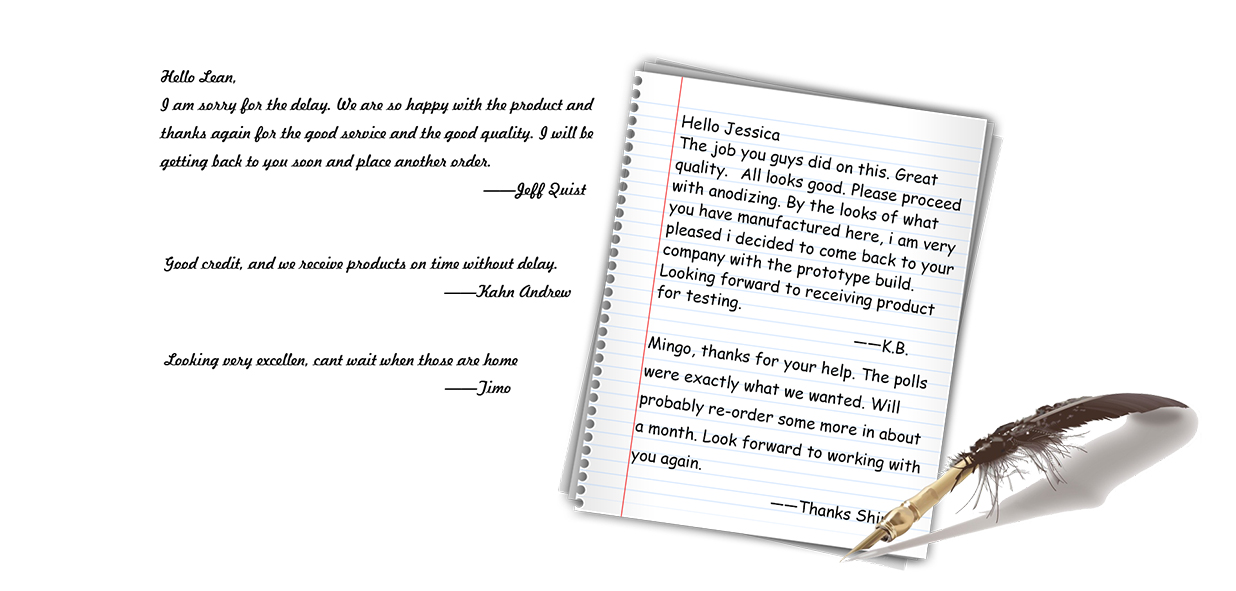 Hello Lean,
I am sorry for the delay. We are so happy with the product and
thanks again for the good service and the good quality. I will be
getting back to you soon and place another order.
——Jeff Quist
Good credit, and we receive products on time without delay.
——Kahn Andrew
Looking very excellen, cant wait when those are home
——Timo
Hello Jessica
The job you guys did on this. Great
quality. All looks good. Please proceed
with anodizing. By the looks of what
you have manufactured here, i am very
pleased i decided to come back to your
company with the prototype build.
Looking forward to receiving product
for testing.
——K.B.
Mingo, thanks for your help. The polls
were exactly what we wanted. Will
probably re-order some more in about
a month. Look forward to working with
you again.
——Thanks